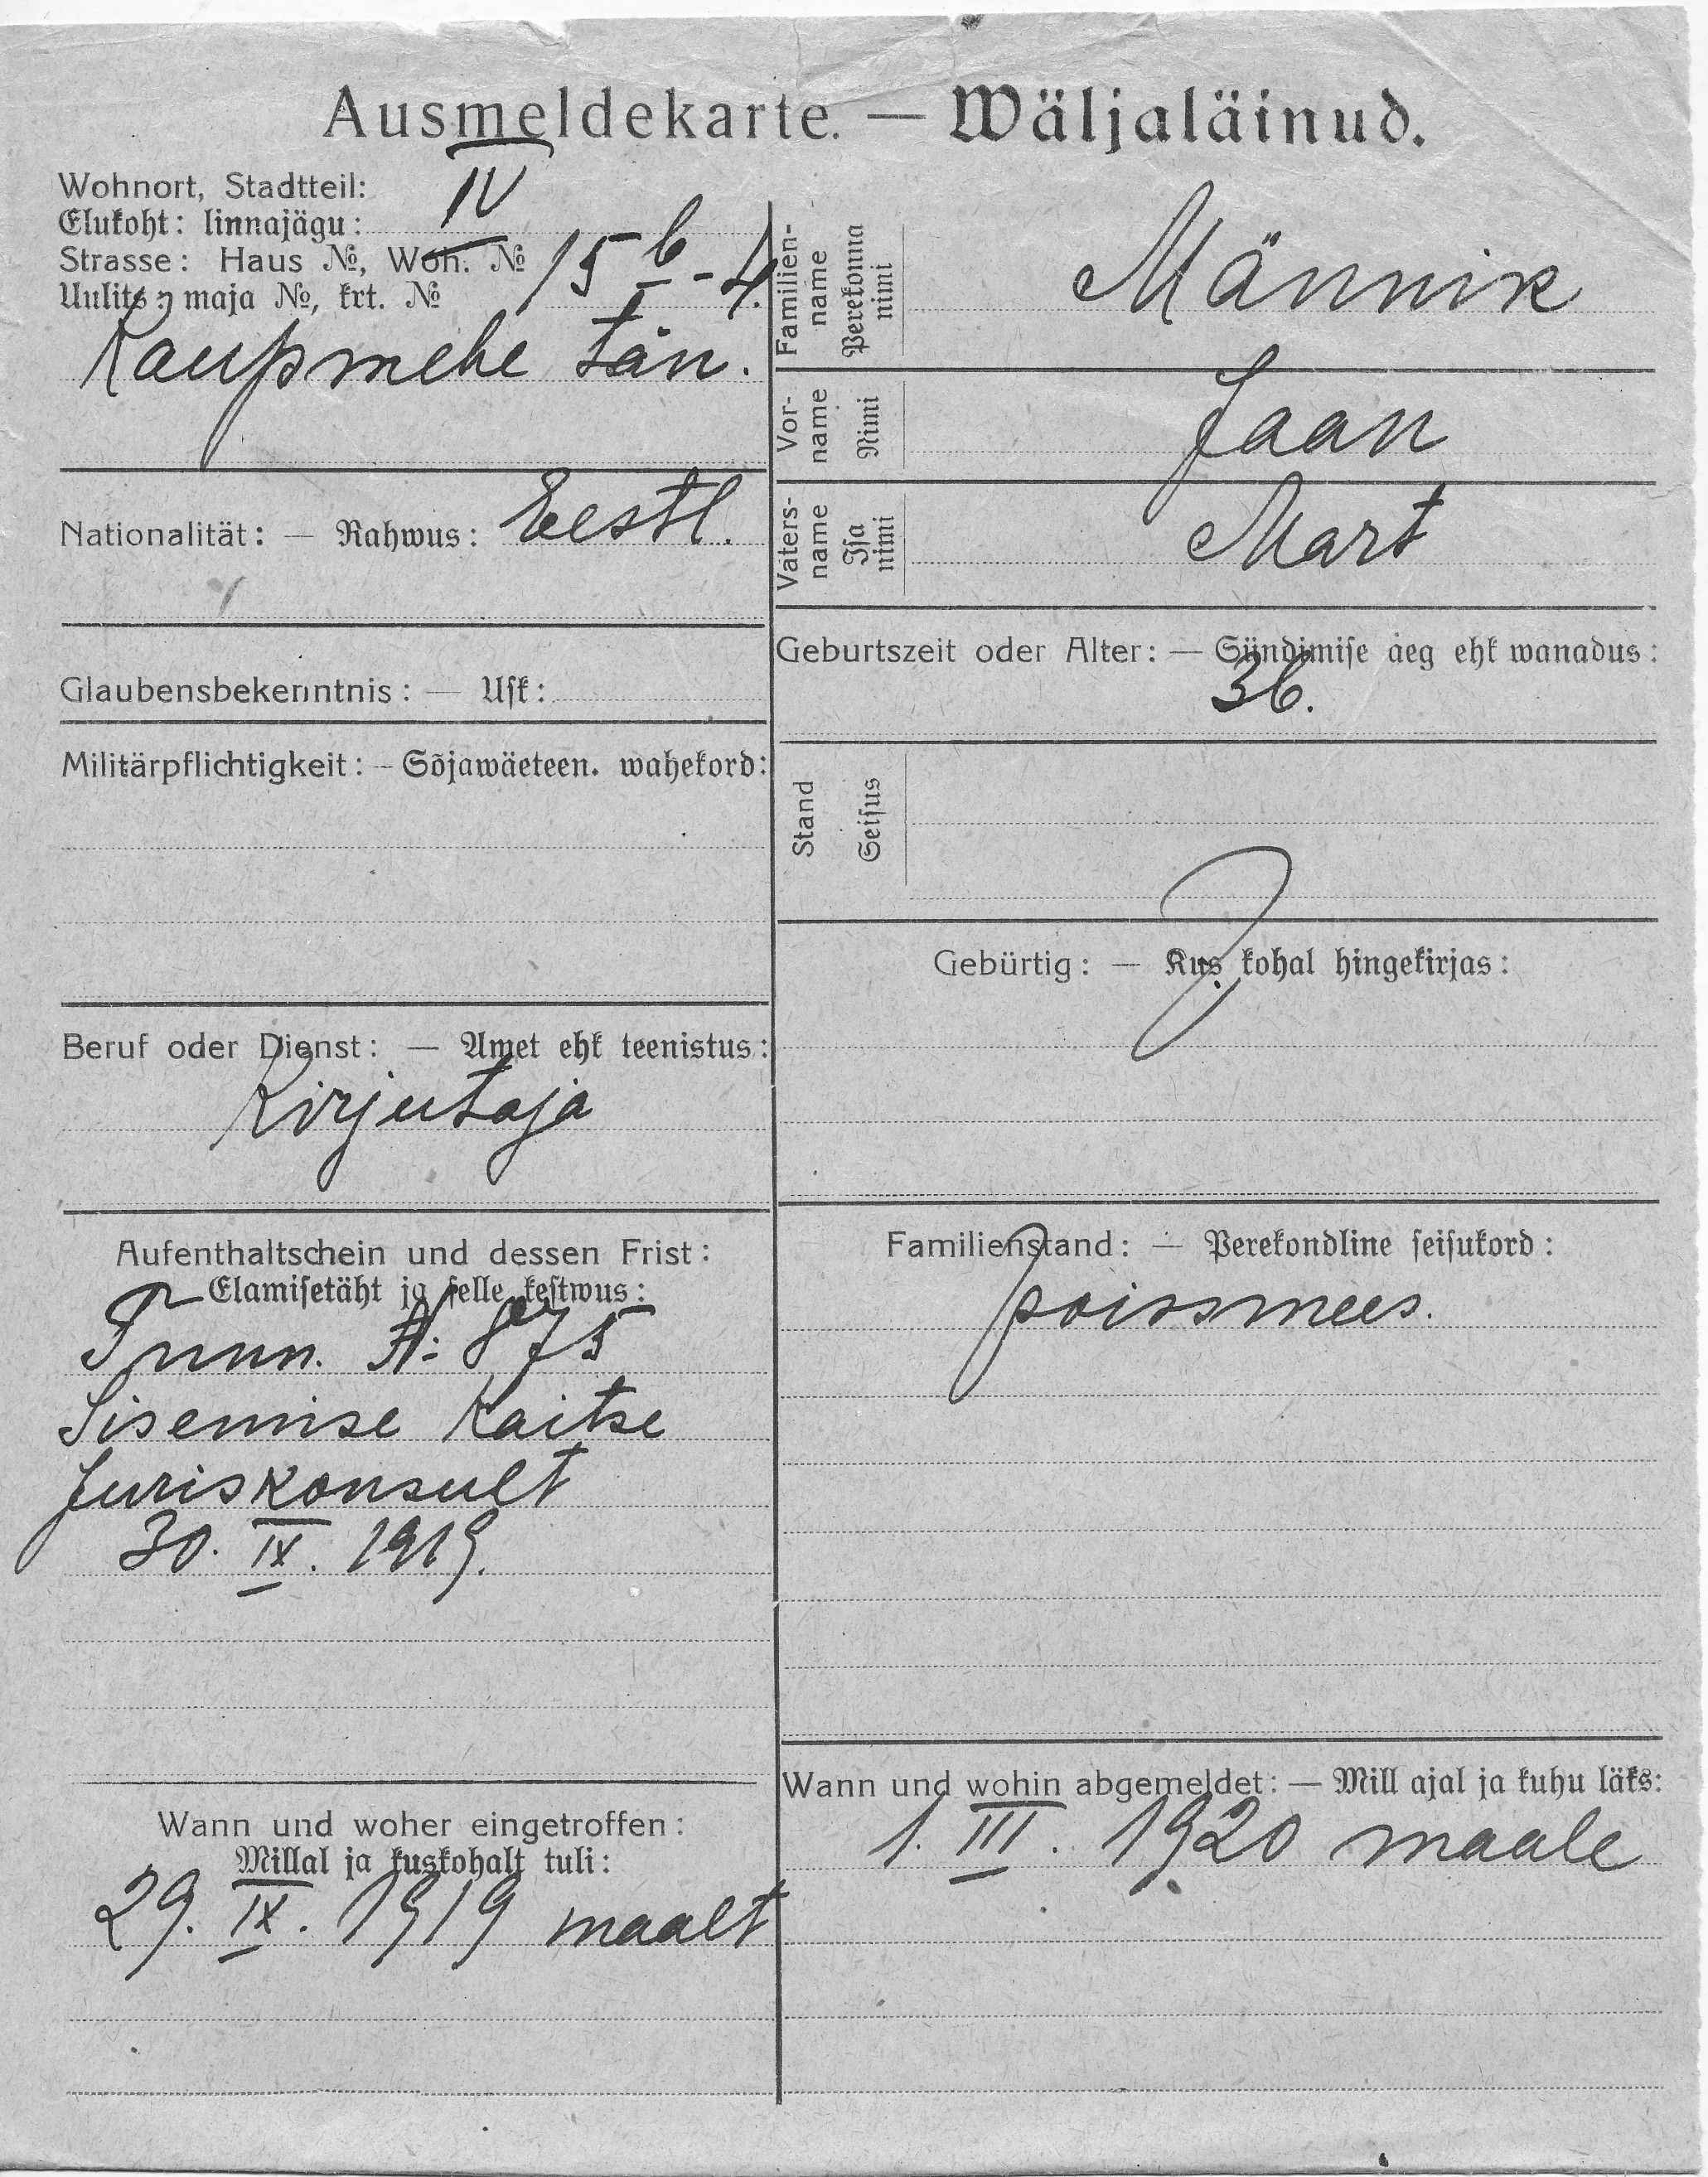 Ausmeldekarte. — Wäljaläinud.
Wohnort, Stadtteil:
Elukoht: linnajägu: IV
Strasse: Haus №, Woh. №
Uulits, maja №, krt. № 15 b - 4.
Kaupmehe tän.
Nationalität: — Rahwus: Eestl.
Glaubensbekenntnis: — Usk:
Militärpflichtigkeit: – Sõjawäeteen. wahekord:
Beruf oder Dienst: — Amet ehk teenistus:
Kirjutaja
Aufenthaltschein und dessen Frist:
Elamisetäht ja selle kestwus:
Tunn. №: 875
Sisemise Kaitse
Juriskonsult
30. IX. 1919.
Wann und woher eingetroffen:
Millal ja kuskohalt tuli:
29. IX. 1919 maalt
Familien-
name
Perekonna
nimi
Männik
Vor-
name
Nimi
Jaan
Vaters-
name
Isa
nimi
Mart
Geburtszeit oder Alter: — Sündimise aeg ehk wanadus:
36.
Stand
Seisus
Gebürtig: — Kus kohal hingekirjas:
?
Familienstand: — Perekondline seisukord:
poissmees.
Wann und wohin abgemeldet: — Mill ajal ja kuhu läks:
1. III. 1920 maale